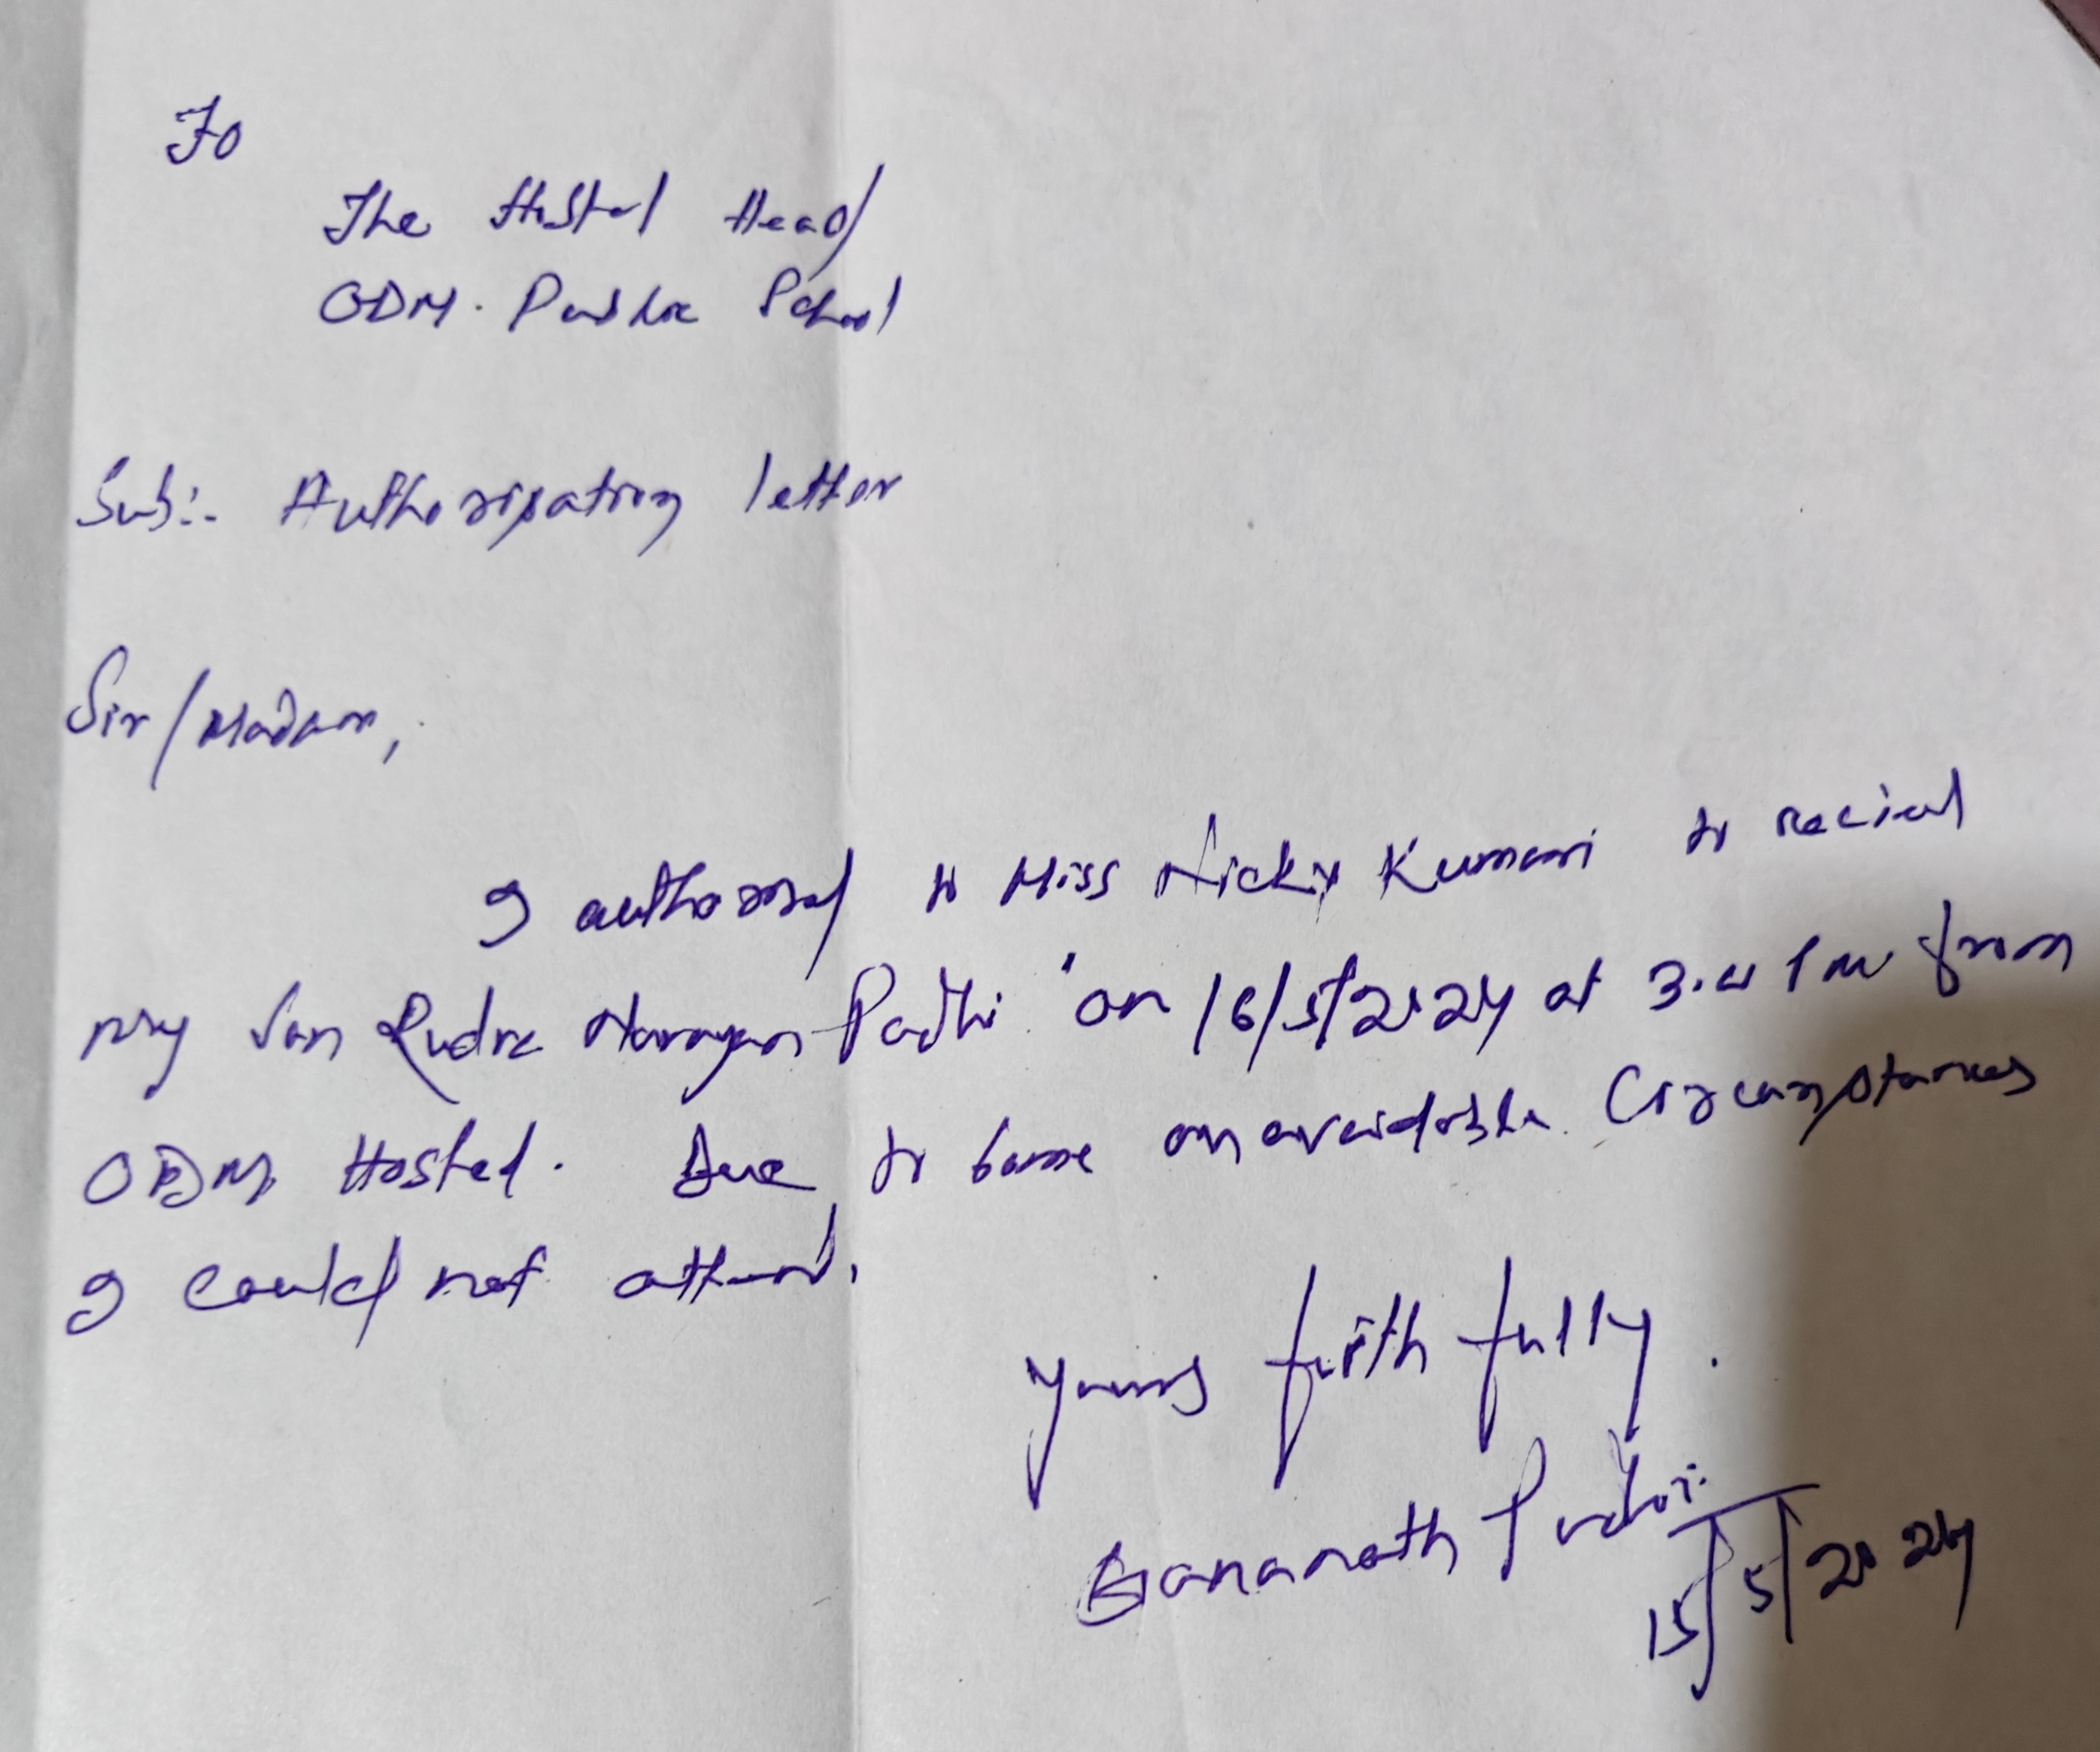 To
The Hostel Head
ODM. Public School
Sub:- Authorisation letter
Sir/Madam,
I authorised to Miss Nicky Kumari to
my Son Rudra Narayan Padhi on 16/5/2024 at from
ODM Hostel. Due to some unavoidable Circumstances
I could not attend.
yours faith fully.
Gananath Padhi
15/5/2024